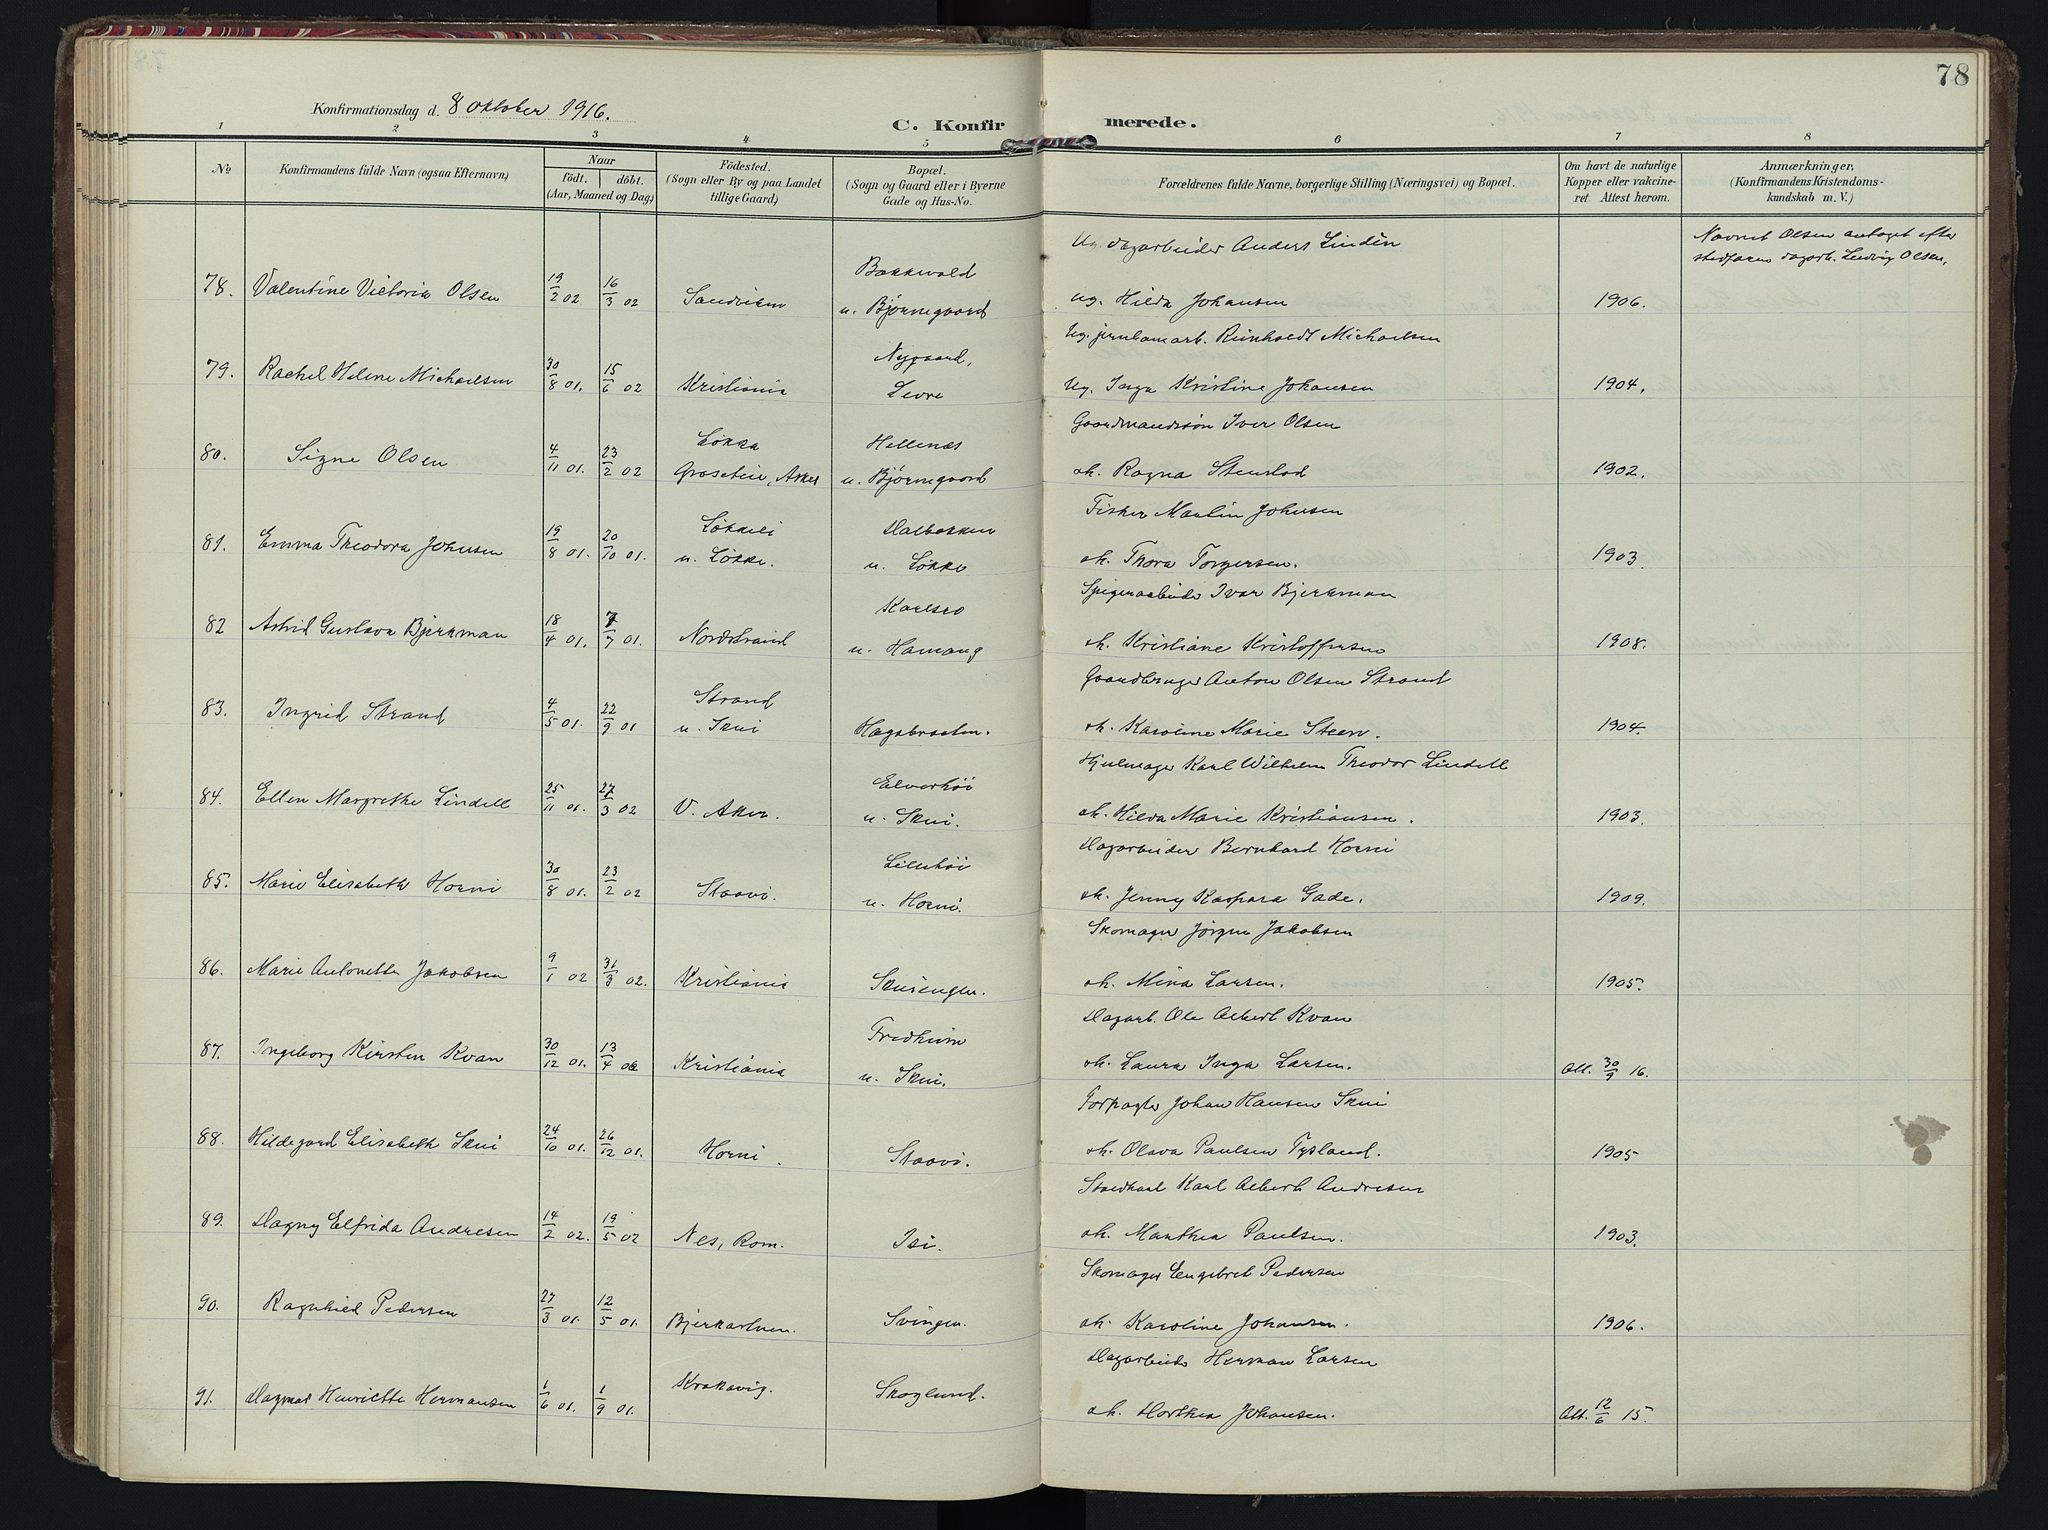 78
Konfirmationsdag d. 8 Oktober 1916.
C. Konfirmerede.
1 2 3 4 5 6 7 8
No.
Konfirmandens fulde Navn (ogsaa Efternavn)
Naar
födt. döbt.
(Aar, Maaned og Dag)
Födested.
(Sogn eller By og paa Landet
tillige Gaard)
Bopæl.
(Sogn og Gaard eller i Byerne
Gade og Hus-No.
Forældrenes fulde Navne, borgerlige Stilling (Næringsvei) og Bopæl.
Om havt de naturlige
Kopper eller vakcine-
ret. Attest herom.
Anmærkninger,
(Konfirmandens Kristendoms-
kundskab m. V.)
Ug. dagarbeider Anders Lindén
Navnet Olsen antaget efter
stedfaren dagarb. Ludvig Olsen,
78. Valentine Victoria Olsen 19/2 02 16/3 02 Sandviken Bakkvold
u. Bjørnegaard ug. Hilda Johansen 1906.
Ug. jernbanearb. Reinholdt Michaelsen
79. Rachel Helene Michaelsen 30/8 01. 15/6 02 Kristiania Nygaard,
Levre Ug. Inga Kristine Johansen 1904.
Gaardmandssøn Iver Olsen
80. Signe Olsen 4/11 01. 23/2 02 Løkka
Groseteie, Asker Hellenes
u. Bjørnegaard oh. Ragna Stenstad 1902.
Fisker Martin Johnsen
81. Emma Theodora Johnsen 19/8 01. 20/10 01. Løkkeli
u. Løkke. Dalbakken
u. Løkke oh. Thora Torgersen. 1903
Spigerarbeider Ivar Bjerkman
82 Astrid Gustava Bjerkman 18/4 01. 7/7 01. Nordstrand Karlsro
u. Hamang oh. Kristiane Kristoffersen 1908.
Gaardbruger Anton Olsen Strand
83. Ingrid Strand 4/5 01. 22/9 01 Strand
u. Skui Hagabraaten. oh. Karoline Marie Steen. 1904.
Hjulmager Karl Wilhelm Theodor Lindell
84. Ellen Margrethe Lindell 25/11 01. 27/3 02 V. Aker. Elverhöi
u. Skui. oh. Hilda Marie Kristiansen. 1903.
Dagarbeider Bernhard Horni
85. Marie Elisabeth Horni 30/8 01. 23/2 02 Staavi. Lillehöi
u. Horni. oh. Jenny Kaspara Gade. 1909.
Skomager Jörgen Jakobsen
86. Marie Antonette Jakobsen 9/1 02 31/3 02. Kristiania Skuiengen. oh. Mina Larsen. 1905.
Dagarb. Ole Albert Kvan
87. Ingeborg Kirsten Kvan 30/12 01. 13/4 02 Kristiania Fredheim
u. Skui. oh. Laura Inga Larsen. Att. 30/9 16.
Forpagter Johan Hansen Skui
88. Hildegard Elisabeth Skui 24/10 01. 26/12 01. Horni. Staavi. oh. Olava Paulsen Tysland. 1905
Staldkarl Karl Albert Andresen
89. Dagny Elfrida Andresen 14/2 02. 19/5 02 Nes, Rom. Isi. oh. Manthea Paulsen. 1903.
Skomager Engebret Pedersen
90. Ragnhild Pedersen 27/3 01. 12/5 01. Bjerkarlven. Svingen. oh. Karoline Johansen. 1906.
Dagarbeider Herman Larsen
91. Dagmar Henriette Hermansen 1/6 01. 1/9 01. Krokavig. Skoglund. oh. Dorthea Johansen. Att. 12/6 15.